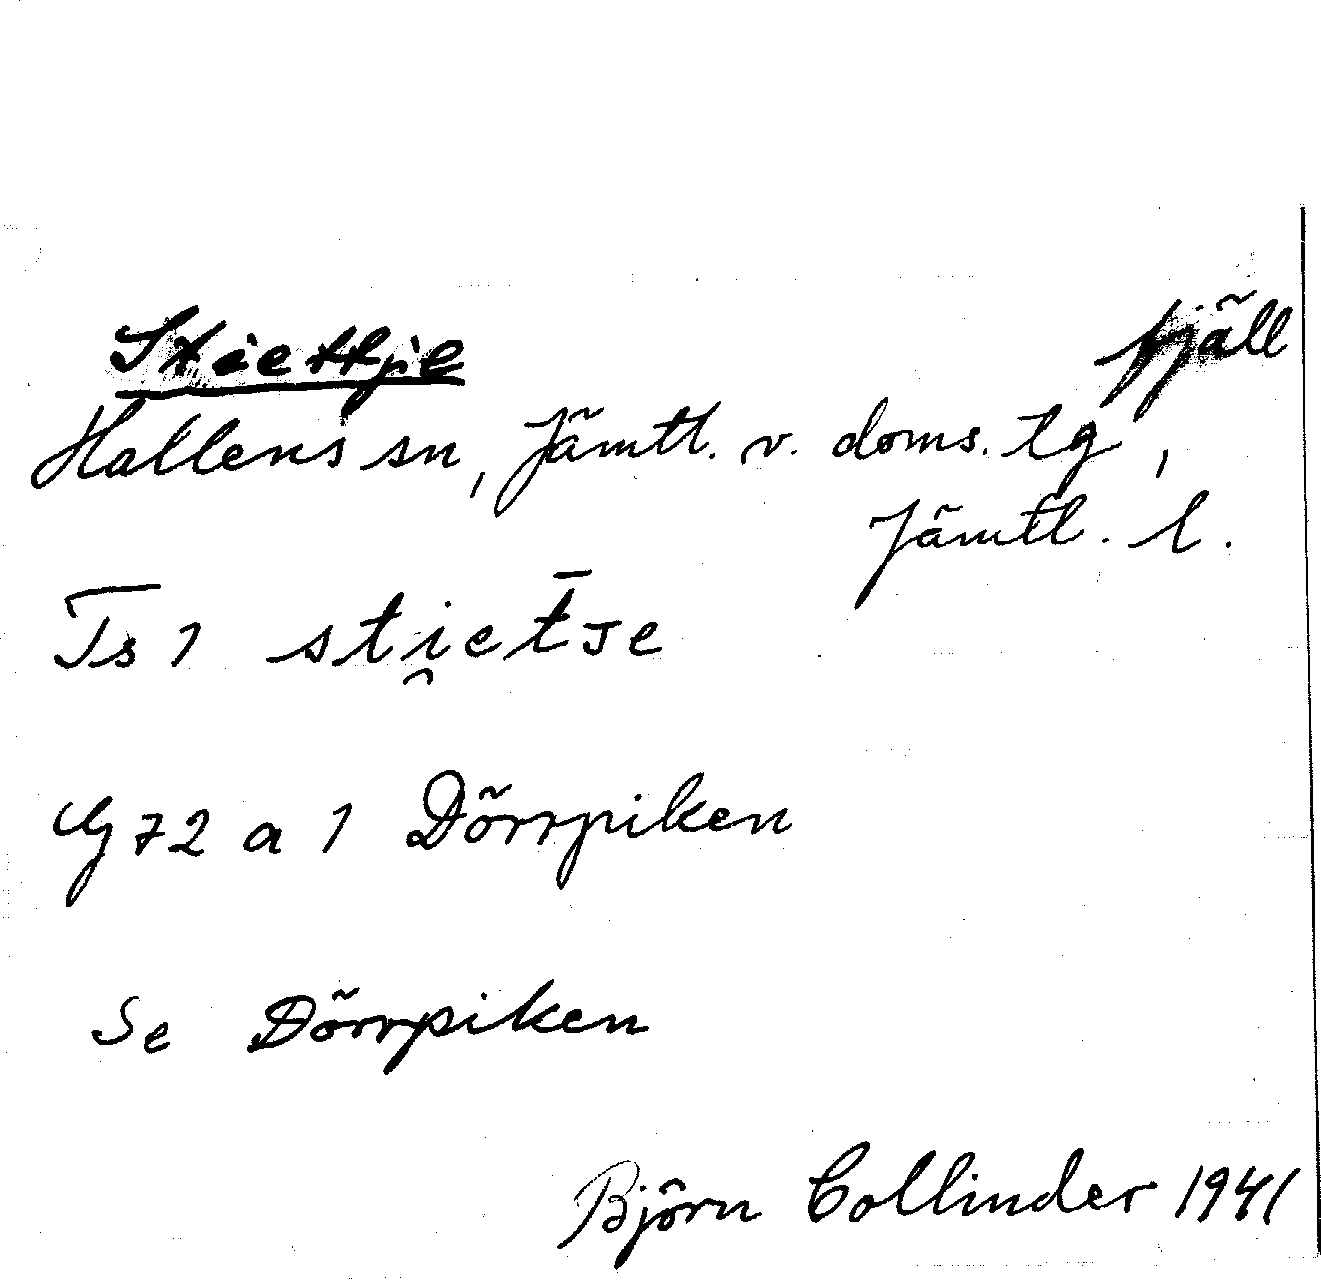 Stiettje fjäll
Hallens sn, Jämtl. v. doms. tg,
Jämtl. l.
Ts 1 sti̯et̄ᴊe
G 72 a 1 Dörrpiken
Se Dörrpiken
Björn Collinder 1941